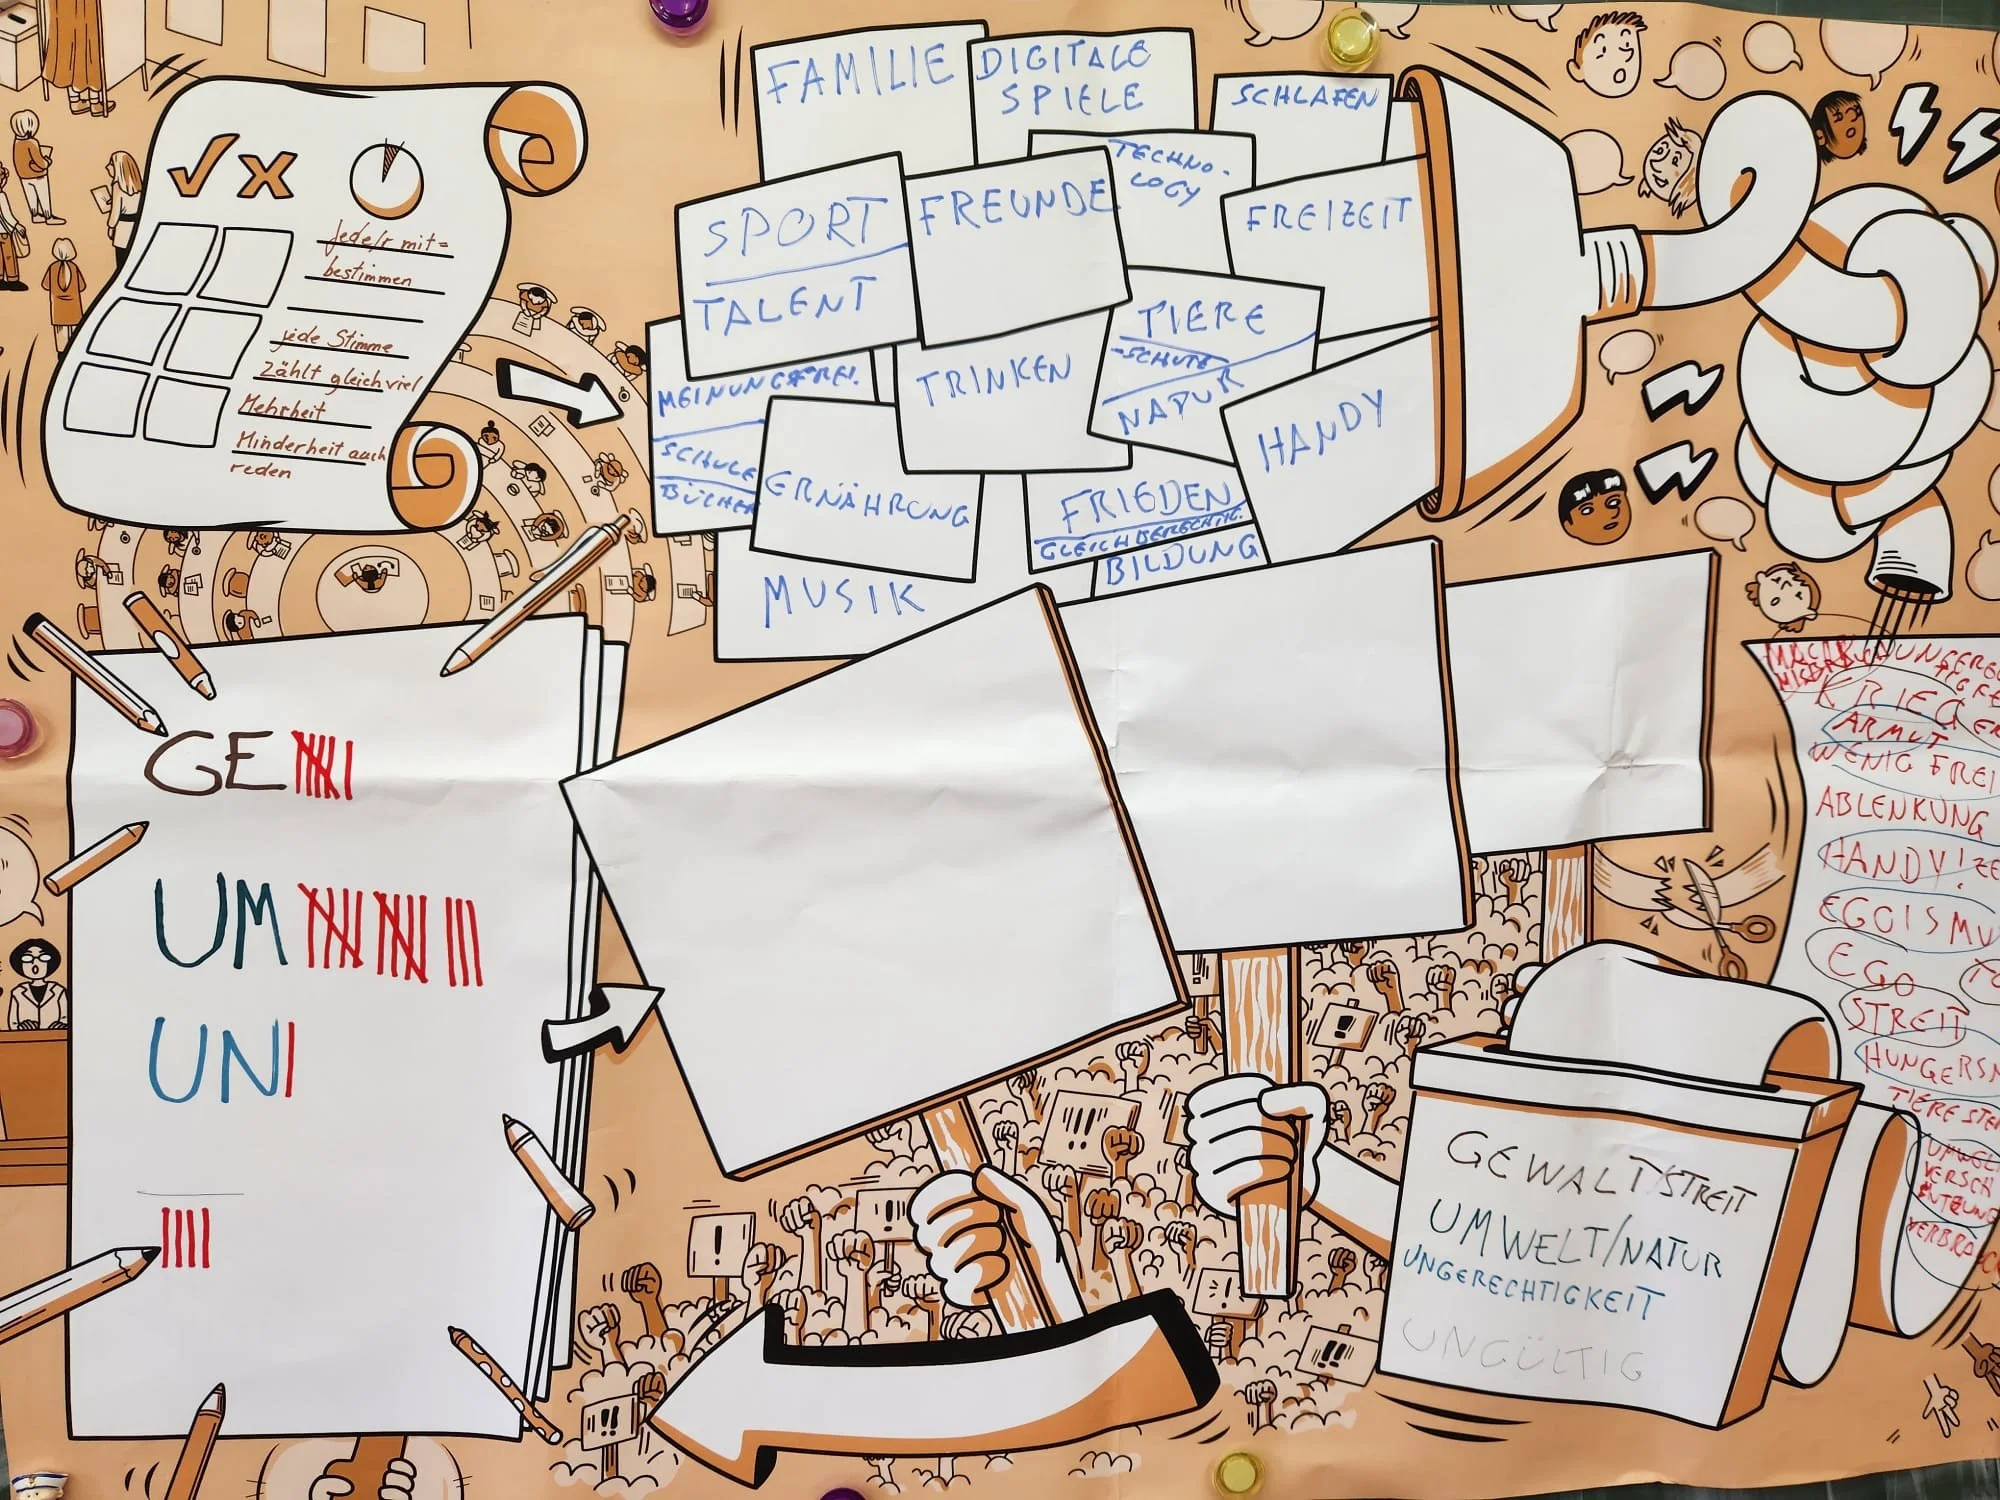 Jede/r mit=
bestimmen
jede Stimme
Zählt gleichviel
Mehrheit
Minderheit auch
reden
FAMILIE
DIGITALE
SPIELE
SCHLAFEN
TECHNO-
LOGY
SPORT
TALENT
FREUNDE
FREIZEIT
TIERE
-SCHUTZ
NATUR
MEINUNGSFREI.
SCHULE
BÜCHER
TRINKEN
HANDY
ERNÄHRUNG
FRIEDEN
GLEICHBERECHTIG.
BILDUNG
MUSIK
GE
UM
UN
KRIEG
ARMUT
WENIG FREI
ABLENKUNG
HANDY! ZE
EGOISMU
EGO
STREIT
HUNGERSN
TIERE STE
UMWEL
VERSCH
MUTZUNG
VERBRAUC
GEWALT/STREIT
UMWELT/NATUR
UNGERECHTIGKEIT
UNGÜLTIG